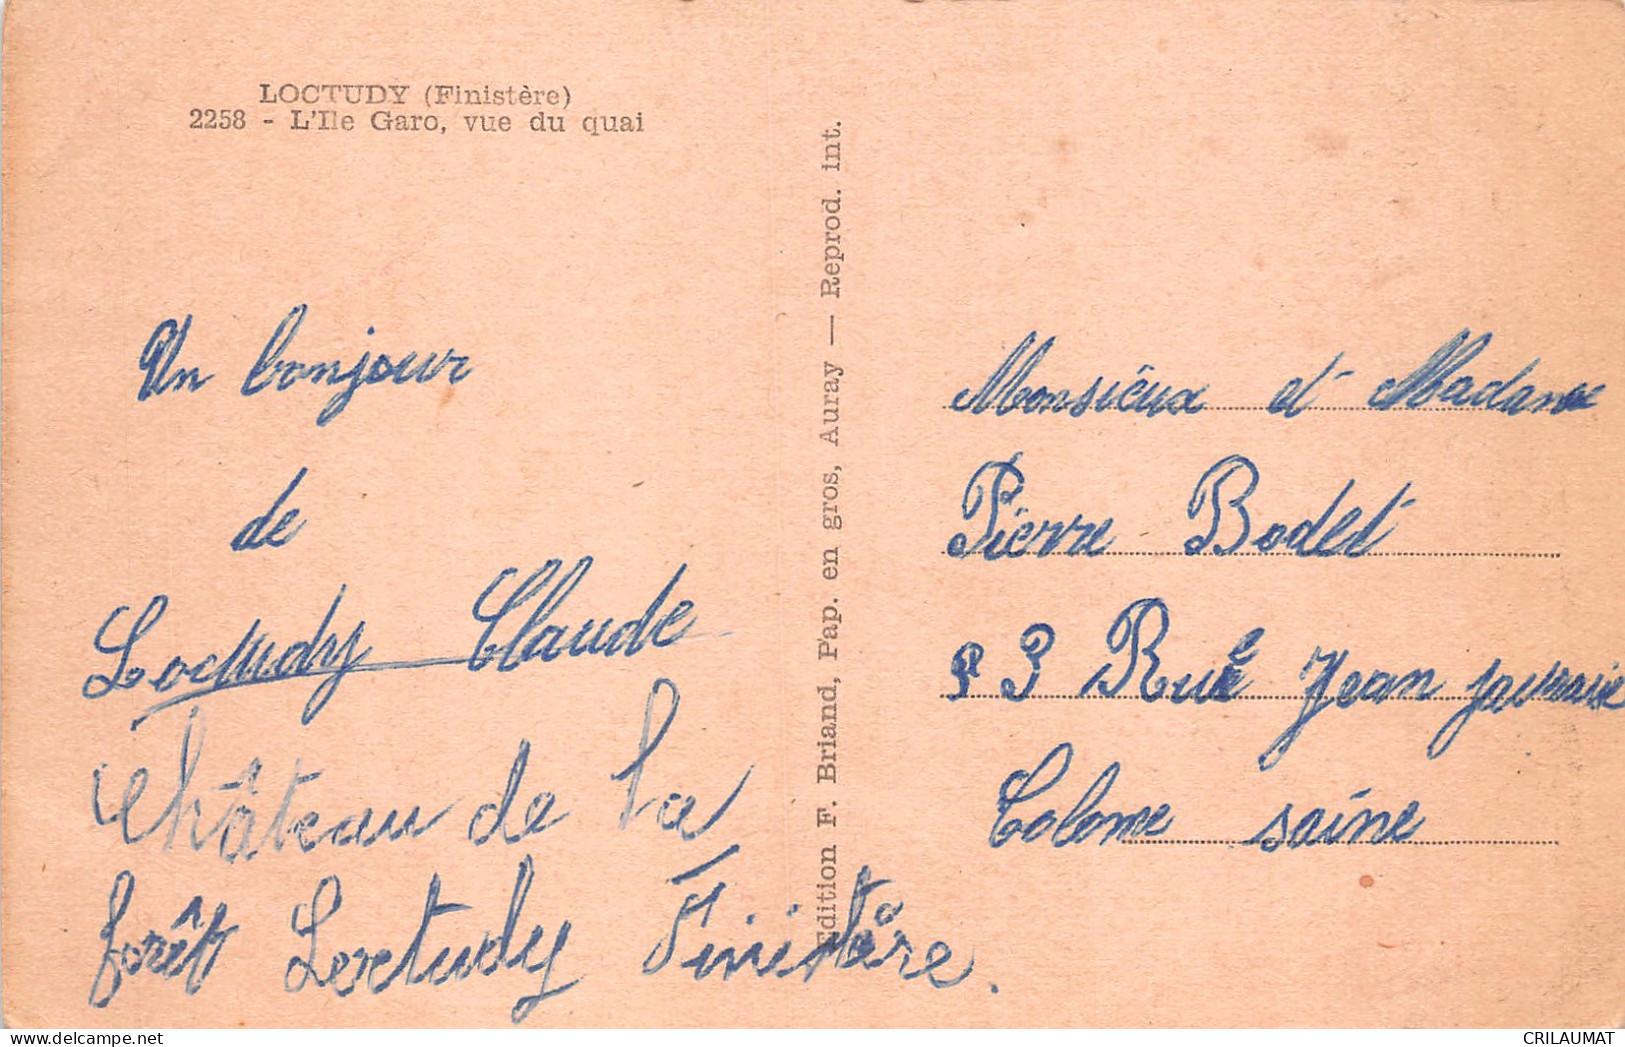 LOCTUDY (Finistère)
2258 - L'Ile Garo, vue du quai
Un bonjour
de
Loctudy Claude
Château de la
forêt Loctudy Finistère.
Edition F. Briand, Pap. en gros, Auray — Reprod. int.
Monsieux et Madame
Pierre Bodet
3 Rue Jean
Colome saine
CRILAUMAT